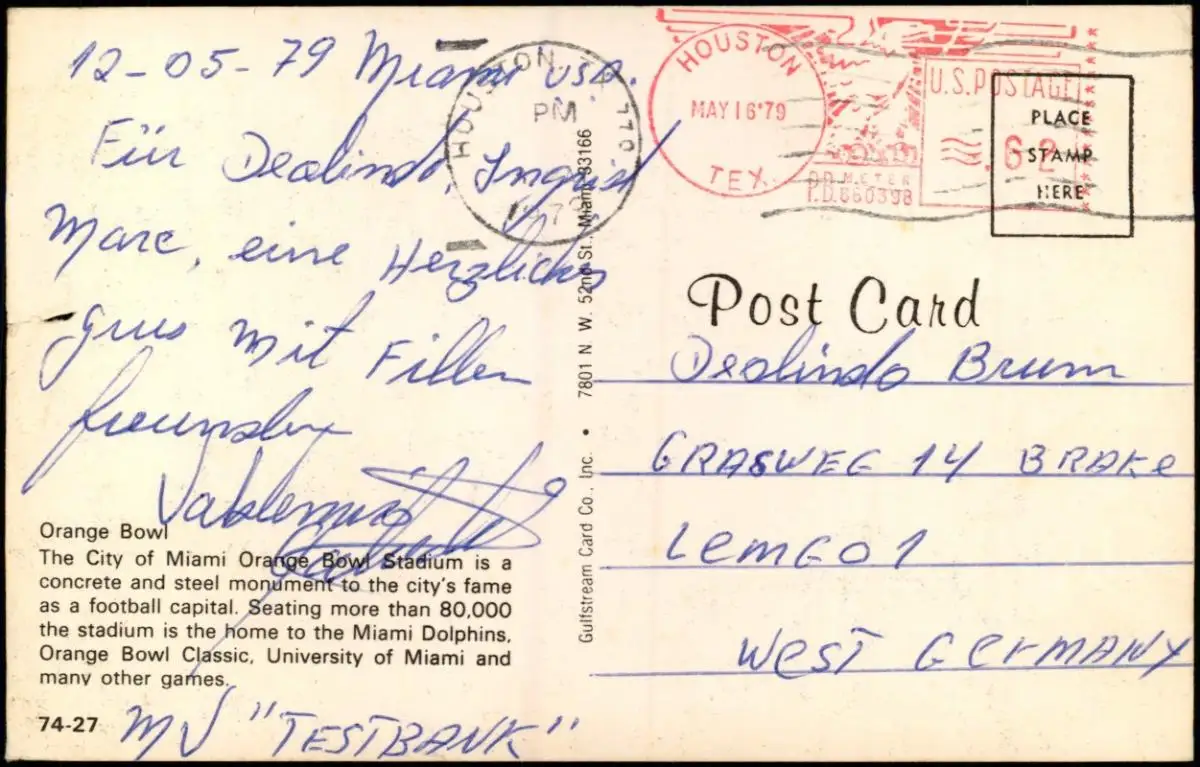 12-05-79 Miami USA.
Für Deolindo, Ingrid
Marc, eine Herzlichen
Grus mit Fillen
Valdemar
Orange Bowl
The City of Miami Orange Bowl Stadium is a
concrete and steel monument to the city's fame
as a football capital. Seating more than 80,000
the stadium is the home to the Miami Dolphins,
Orange Bowl Classic, University of Miami and
many other games.
74-27
MV "TESTBANK"
Gulfstream Card Co., Inc. • 7801 N. W. 52nd St., Miami 33166
HOUSTON, TX 770
PM
HOUSTON
MAY 16'79
TEX.
P.B. METER
P.B.660398
U.S. POSTAGE
.62
PLACE
STAMP
HERE
Post Card
Deolindo Brum
GRASWEG 14 BRAKE
LEMGO 1
WEST GERMANY